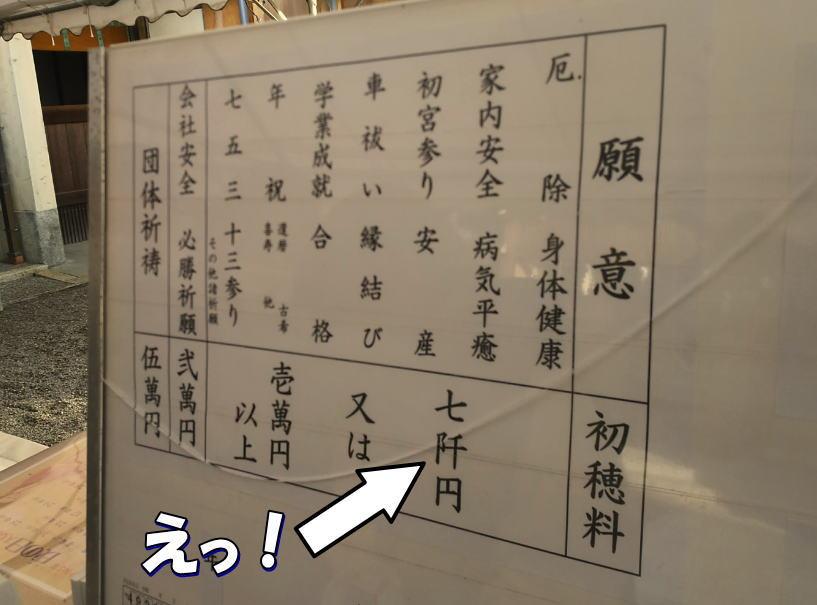 願意
初穂料
厄除 身体健康
家内安全 病気平癒
初宮参り 安産
車祓い 縁結び
学業成就 合格
年祝 還暦 古希
喜寿 他
七五三 十三参り
その他諸祈願
七阡円
又は
壱萬円
以上
会社安全 必勝祈願
弐萬円
団体祈祷
伍萬円
えっ!